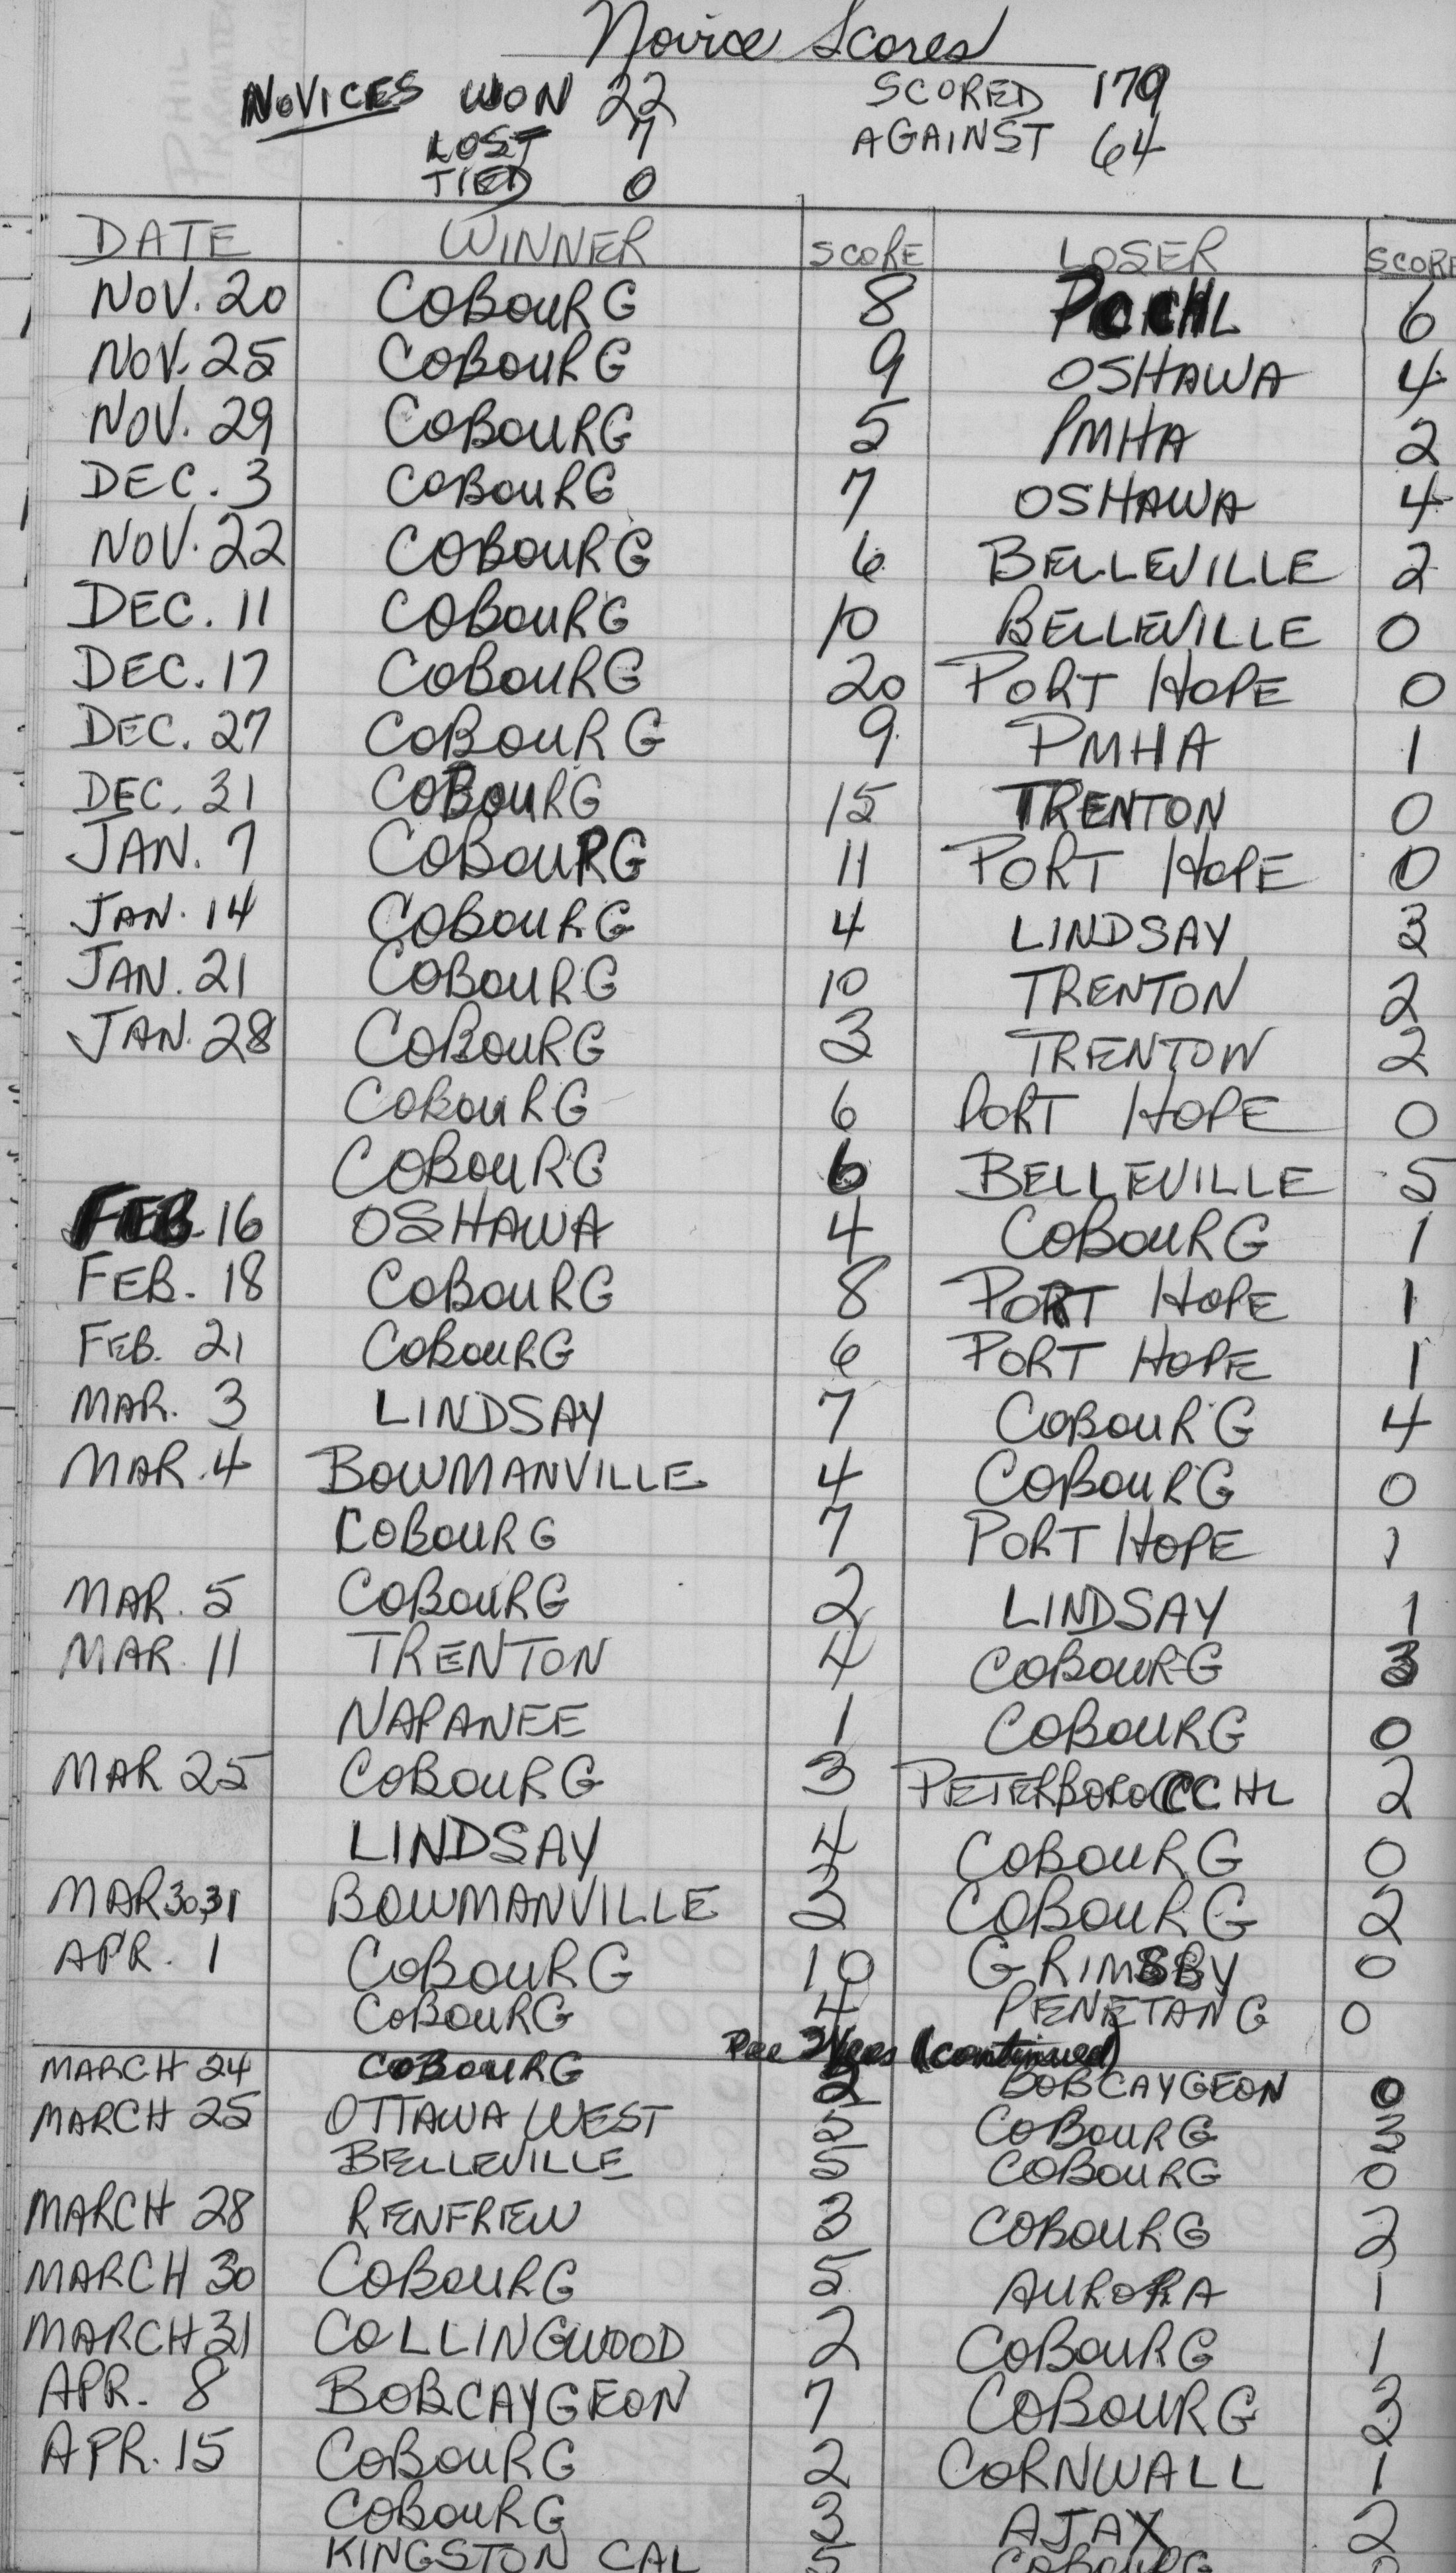 Novice Scores
NOVICES WON 22 SCORED 179
LOST 7 AGAINST 64
TIED 0
DATE WINNER SCORE LOSER SCORE
NOV. 20 COBOURG 8 PCCHL 6
NOV. 25 COBOURG 9 OSHAWA 4
NOV. 29 COBOURG 5 PMHA 2
DEC. 3 COBOURG 7 OSHAWA 4
NOV. 22 COBOURG 6 BELLEVILLE 2
DEC. 11 COBOURG 10 BELLEVILLE 0
DEC. 17 COBOURG 20 PORT HOPE 0
DEC. 27 COBOURG 9 PMHA 1
DEC. 31 COBOURG 15 TRENTON 0
JAN. 7 COBOURG 11 PORT HOPE 0
JAN. 14 COBOURG 4 LINDSAY 3
JAN. 21 COBOURG 10 TRENTON 2
JAN. 28 COBOURG 3 TRENTON 2
COBOURG 6 PORT HOPE 0
COBOURG 6 BELLEVILLE 5
FEB. 16 OSHAWA 4 COBOURG 1
FEB. 18 COBOURG 8 PORT HOPE 1
FEB. 21 COBOURG 6 PORT HOPE 1
MAR. 3 LINDSAY 7 COBOURG 4
MAR. 4 BOWMANVILLE 4 COBOURG 0
COBOURG 7 PORT HOPE 1
MAR. 5 COBOURG 2 LINDSAY 1
MAR. 11 TRENTON 4 COBOURG 3
NAPANEE 1 COBOURG 0
MAR 25 COBOURG 3 PETERBORO CCHL 2
LINDSAY 4 COBOURG 0
MAR 30,31 BOWMANVILLE 3 COBOURG 2
APR. 1 COBOURG 10 GRIMSBY 0
COBOURG 4 PENETANG 0
Pee Wees (continued)
MARCH 24 COBOURG 2 BOBCAYGEON 0
MARCH 25 OTTAWA WEST 5 COBOURG 3
BELLEVILLE 5 COBOURG 0
MARCH 28 RENFREW 3 COBOURG 2
MARCH 30 COBOURG 5 AURORA 1
MARCH 31 COLLINGWOOD 2 COBOURG 1
APR. 8 BOBCAYGEON 7 COBOURG 3
APR. 15 COBOURG 2 CORNWALL 1
COBOURG 3 AJAX 2
KINGSTON CAL 5 COBOURG